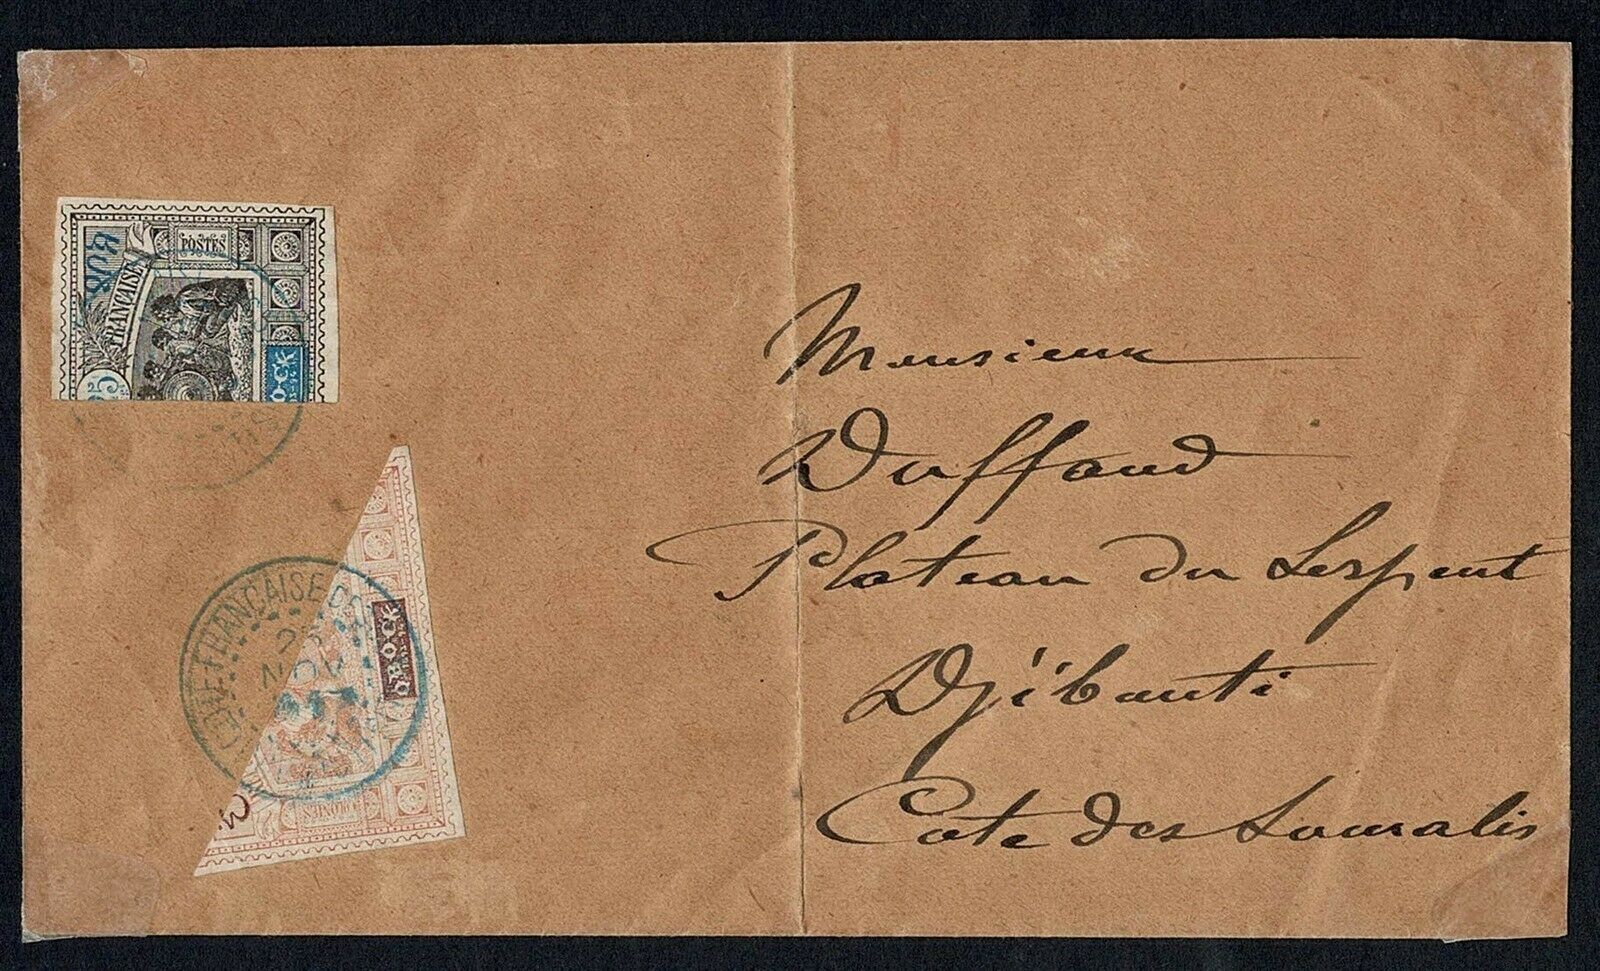 POSTES
FRANÇAISE
25
OBOCK
COLONIES
CÔTE FRANÇAISE DE
25
NOV
Monsieur
Duffaud
Plateau du Serpent
Djibouti
Cote des Somalis